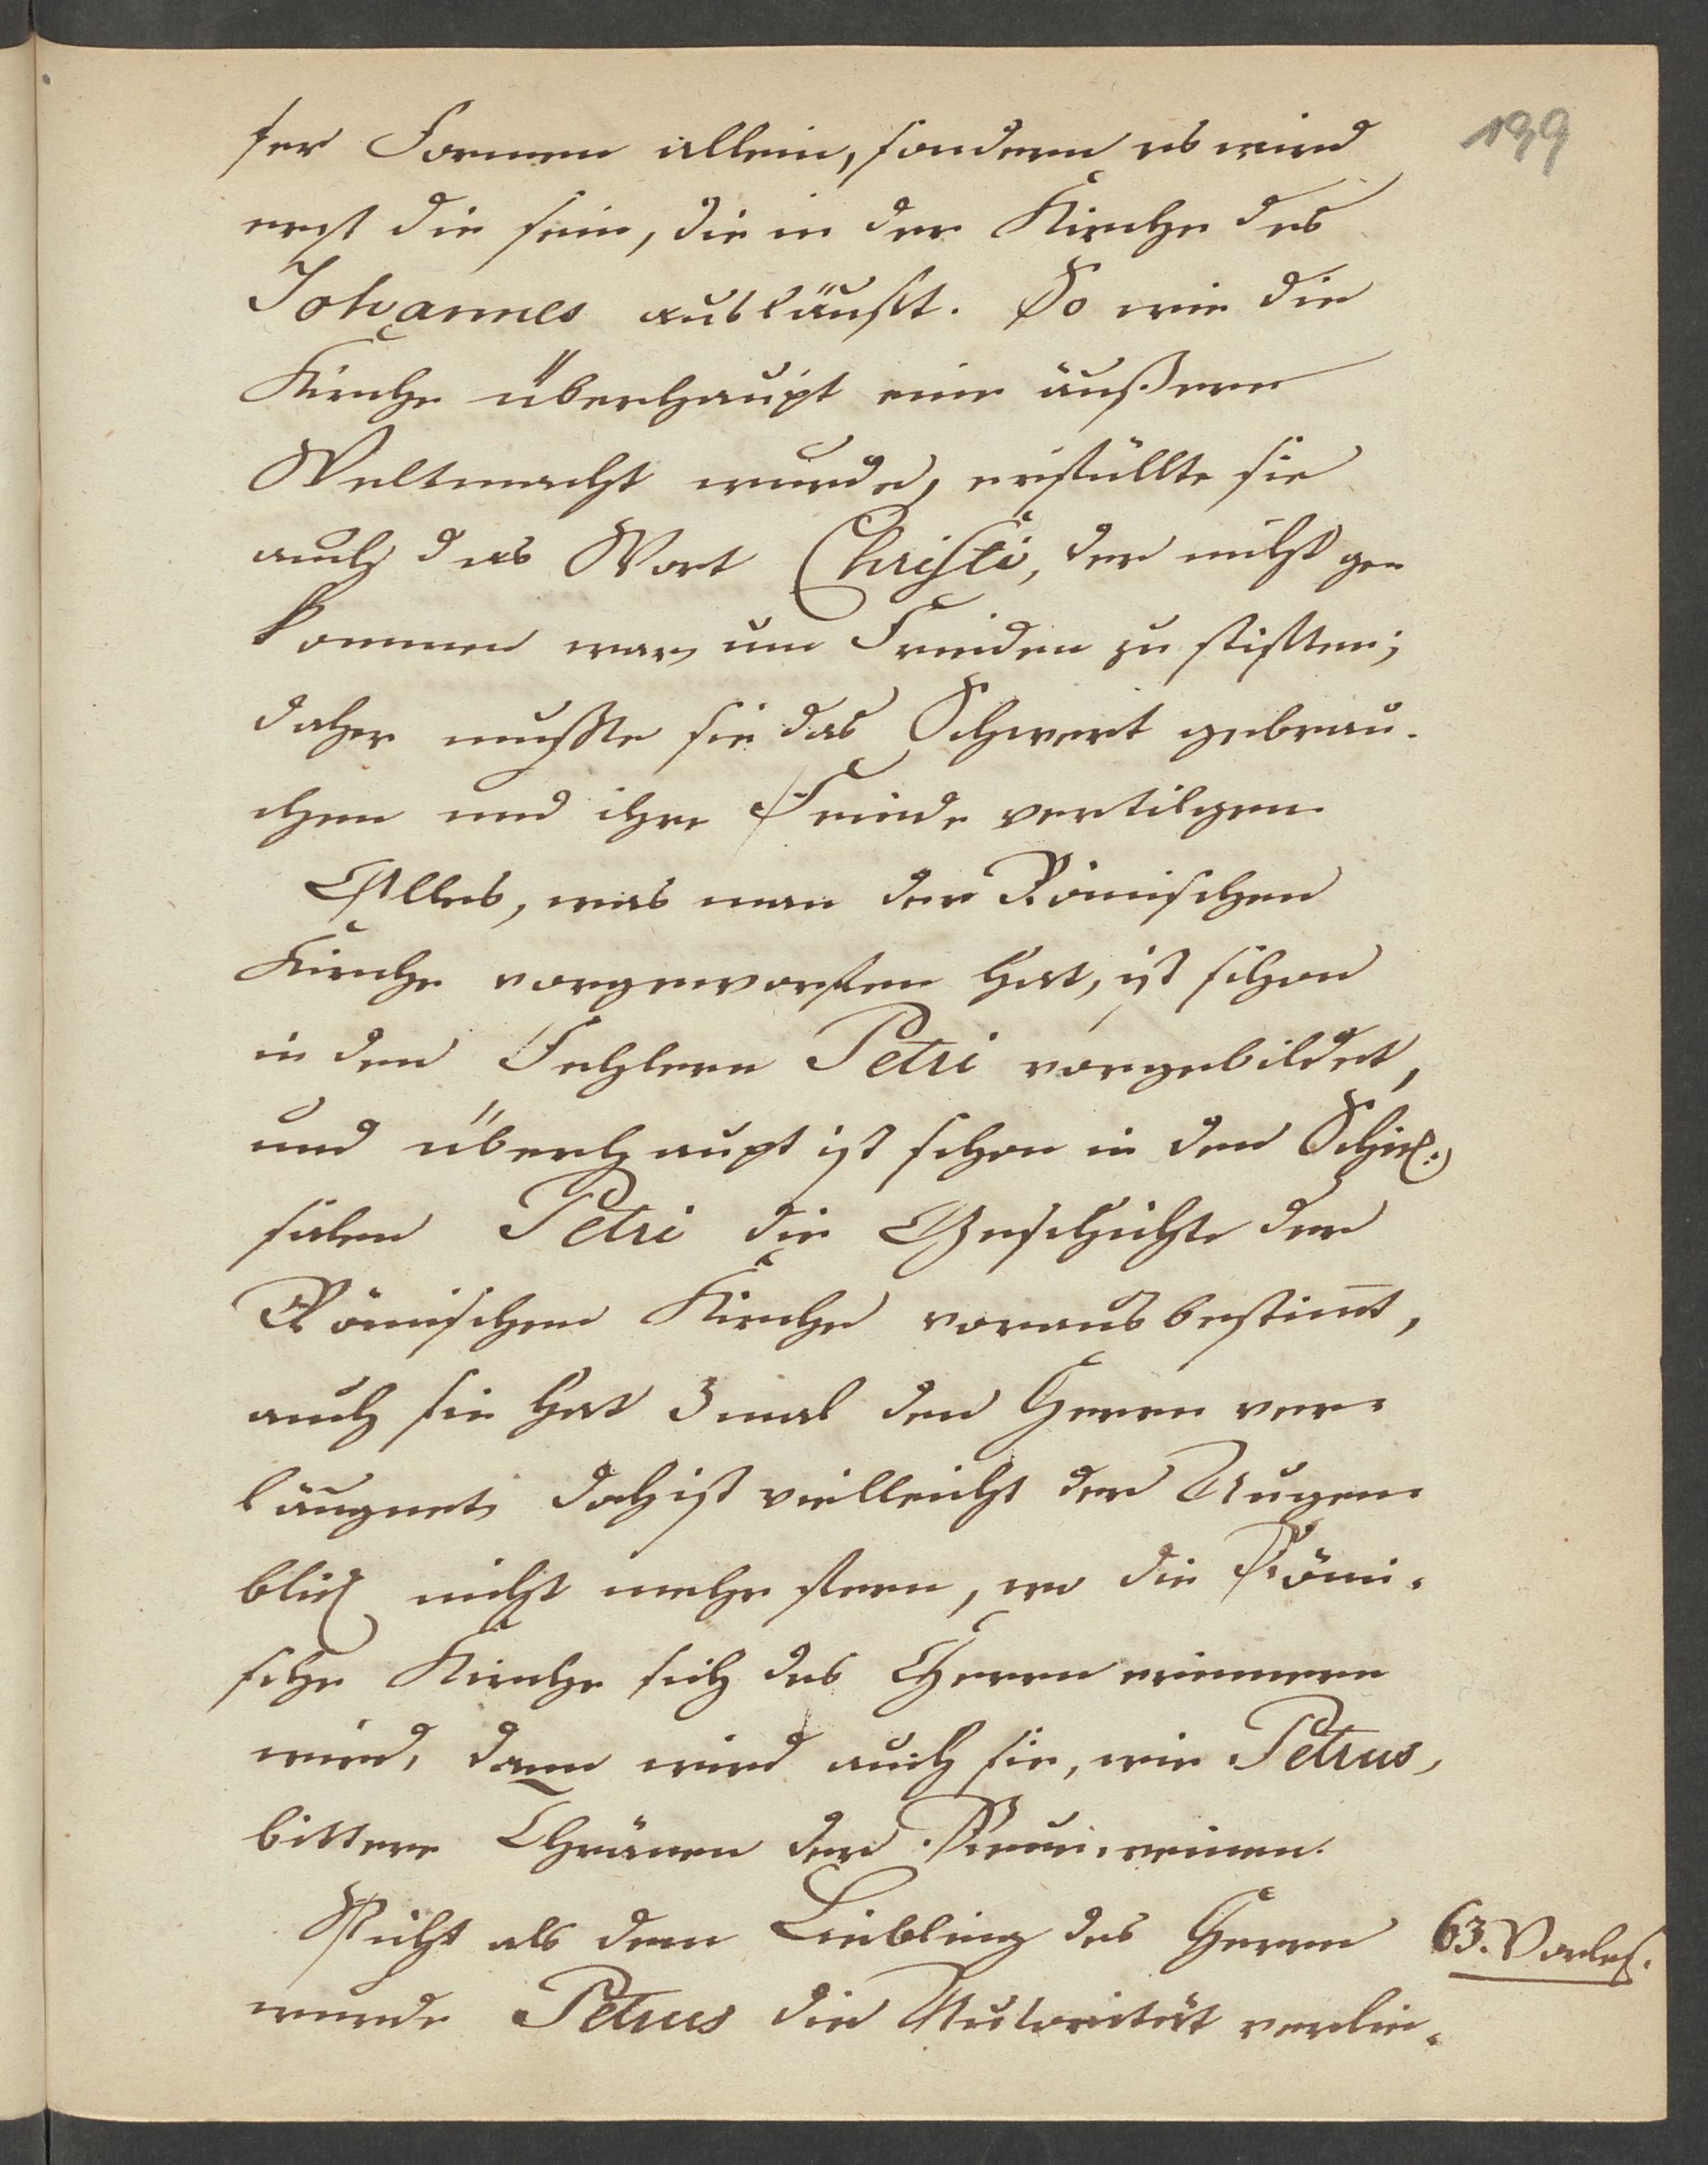 199
ser Formen allein, sondern es wird
erst die sein, die in der Kirche des
Johannes ausläuft. So wie die
Kirche überhaupt eine äußere
Weltmacht wurde, erfüllte sie
auch das Wort Christi, der nicht ge-
kommen war, um Frieden zu stiften;
daher mußte sie das Schwert gebrau-
chen und ihre Feinde vertilgen
Alles, was man der Römischen
Kirche vorgeworfen hat, ist schon
in den Fehlern Petri vorgebildet,
und überhaupt ist schon in den Schick-
salen Petri die Geschichte der
Römischen Kirche vorausbestim̅t,
auch sie hat 3mal den Herrn ver-
läugnet, doch ist vielleicht der Augen-
blick nicht mehr fern, wo die Römi-
sche Kirche sich des Herrn erinnern
wird, dann wird auch sie, wie Petrus,
bittere Thränen der Reue weinen.
Nicht als dem Liebling des Herrn
63. Vorles.
wurde Petrus die Autorität verlie-